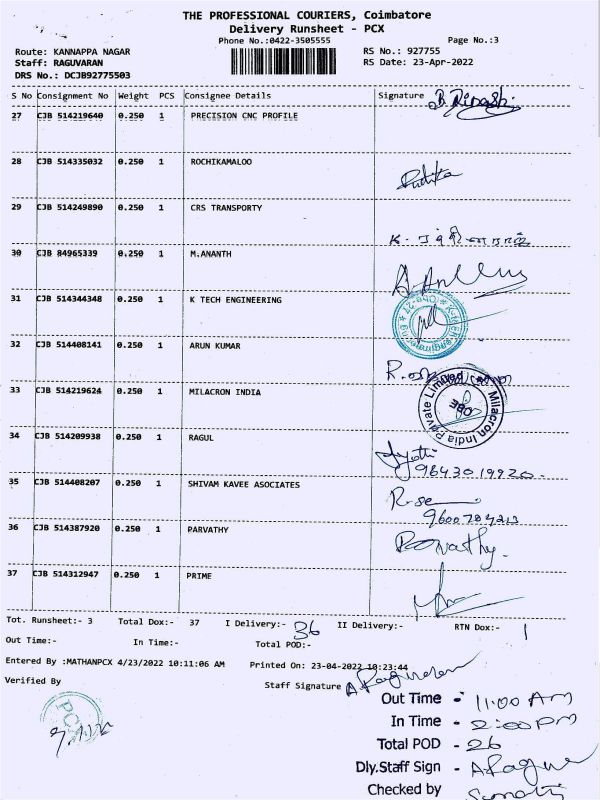 THE PROFESSIONAL COURIERS, Coimbatore
Delivery Runsheet - PCX
Phone No.:0422-3505555 Page No.:3
Route: KANNAPPA NAGAR RS No.: 927755
Staff: RAGUVARAN RS Date: 23-Apr-2022
DRS No.: DCJB92775503
S No Consignment No Weight PCS Consignee Details Signature
27 CJB 514219640 0.250 1 PRECISION CNC PROFILE
28 CJB 514335032 0.250 1 ROCHIKAMALOO
29 CJB 514249890 0.250 1 CRS TRANSPORTY
30 CJB 84965339 0.250 1 M.ANANTH
31 CJB 514344348 0.250 1 K TECH ENGINEERING
32 CJB 514408141 0.250 1 ARUN KUMAR
33 CJB 514219624 0.250 1 MILACRON INDIA
Milacron India Private Limited
34 CJB 514209938 0.250 1 RAGUL
Jyothi
9843019920
35 CJB 514408207 0.250 1 SHIVAM KAVEE ASOCIATES
36 CJB 514387920 0.250 1 PARVATHY
Parvathy
37 CJB 514312947 0.250 1 PRIME
Tot. Runsheet:- 3 Total Dox:- 37 I Delivery:- 36 II Delivery:- RTN Dox:- 1
Out Time:- In Time:- Total POD:-
Entered By :MATHANPCX 4/23/2022 10:11:06 AM Printed On: 23-04-2022 10:23:44
Verified By Staff Signature A. Raguvaran
PCX
Out Time - 11:00 AM
In Time - 2:00 PM
Total POD - 26
Dly.Staff Sign -
Checked by